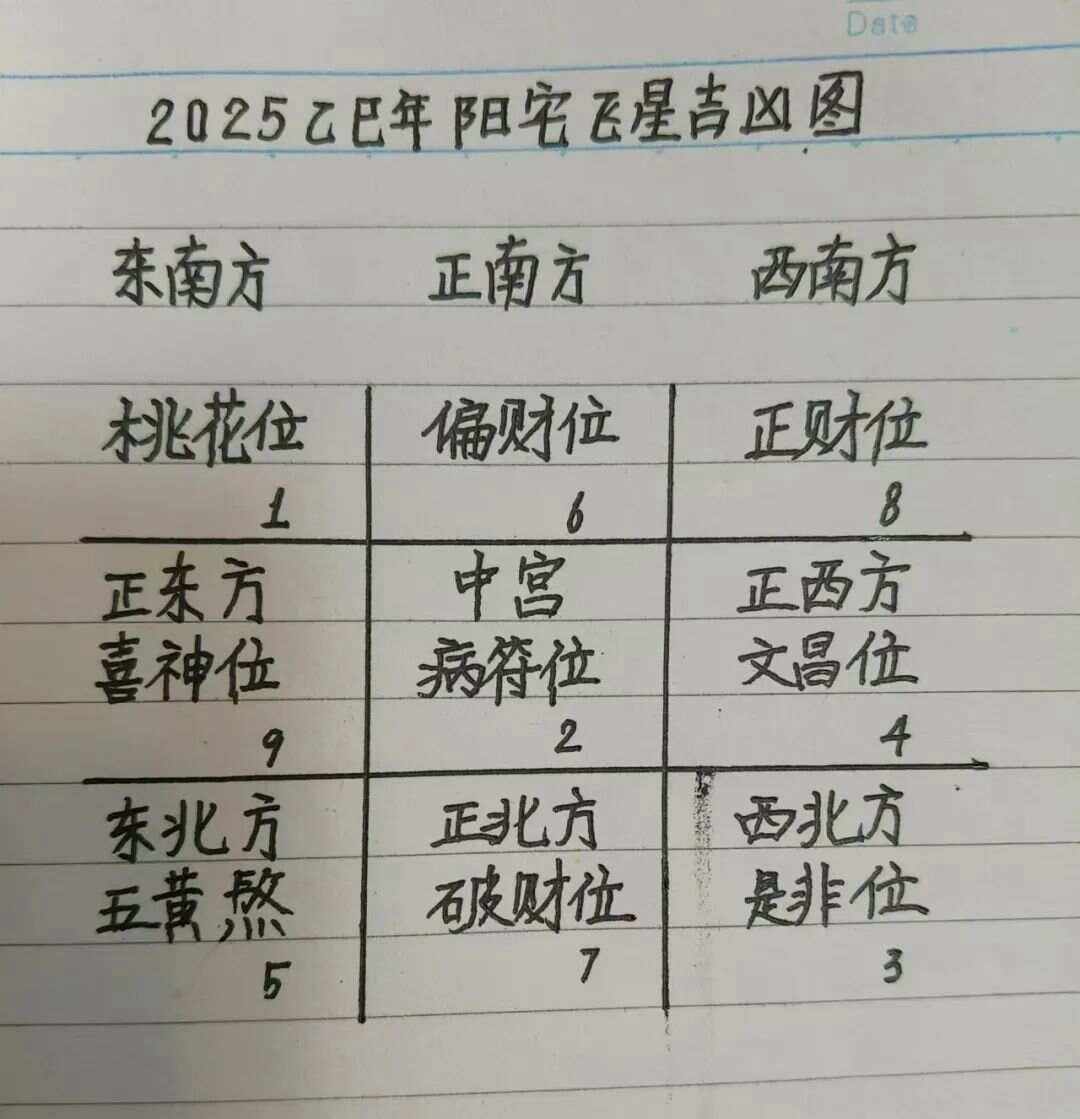 Date
2025乙巳年阳宅飞星吉凶图
东南方 正南方 西南方
桃花位 偏财位 正财位
1 6 8
正东方 中宫 正西方
喜神位 病符位 文昌位
9 2 4
东北方 正北方 西北方
五黄煞 破财位 是非位
5 7 3